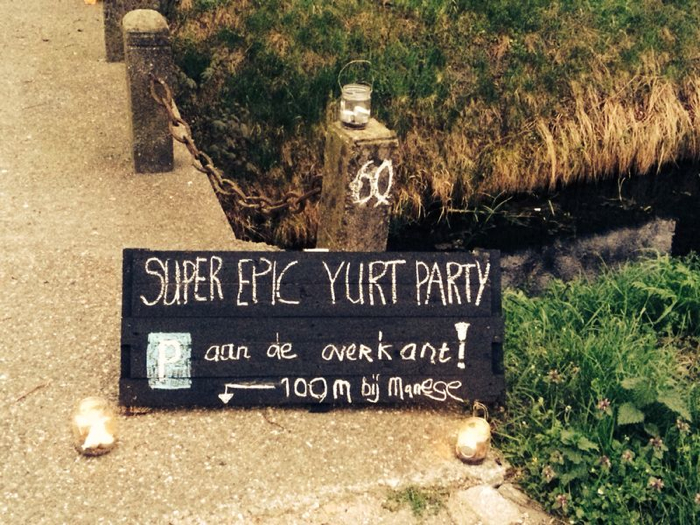 60
SUPER EPIC YURT PARTY
P aan de overkant!
100m bij Manege